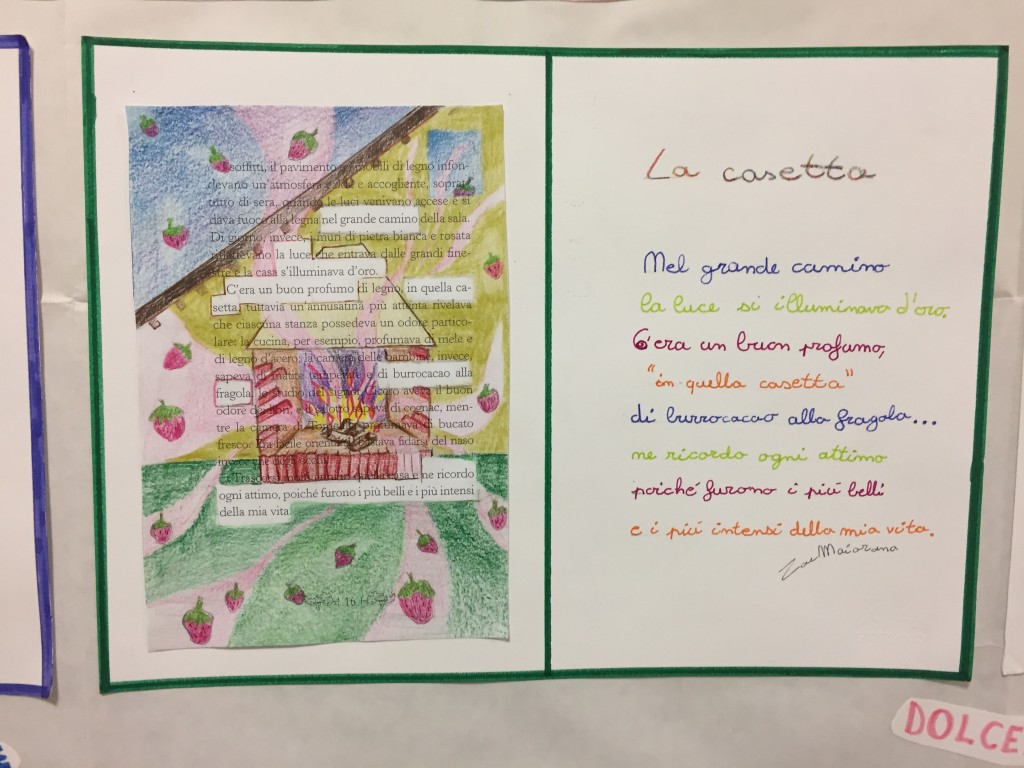 soffitti, il pavimento mobili di legno infon-
devano un'atmosfera e accogliente, soprat-
tutto di sera, quando le luci venivano accese e si
dava fuoco alla legna nel grande camino della sala.
Di giorno, invece, i muri di pietra bianca e rosata
riflettevano la luce che entrava dalle grandi fine-
stre e la casa s'illuminava d'oro.
C'era un buon profumo di legno, in quella ca-
setta, tuttavia un'annusatina più attenta rivelava
che ciascuna stanza possedeva un odore partico-
lare: la cucina, per esempio, profumava di mele e
di legno d'acero; la camera delle bambine, invece,
sapeva di matite temperate e di burrocacao alla
fragola, lo studio del signor aveva il buon
odore dei libri, e il salotto sapeva di cognac, men-
tre la camera di profumava di bucato
fresco. Era facile orientarsi: bastava fidarsi del naso
invece che degli occhi.
Trascorsi molti in quella casa e ne ricordo
ogni attimo, poiché furono i più belli e i più intensi
della mia vita.
16
La casetta
Nel grande camino
la luce si illuminava d'oro.
C'era un buon profumo,
"in quella casetta"
di burrocacao alla fragola...
ne ricordo ogni attimo
poiché furono i più belli
e i più intensi della mia vita.
Zoe Maiorana
DOLCE